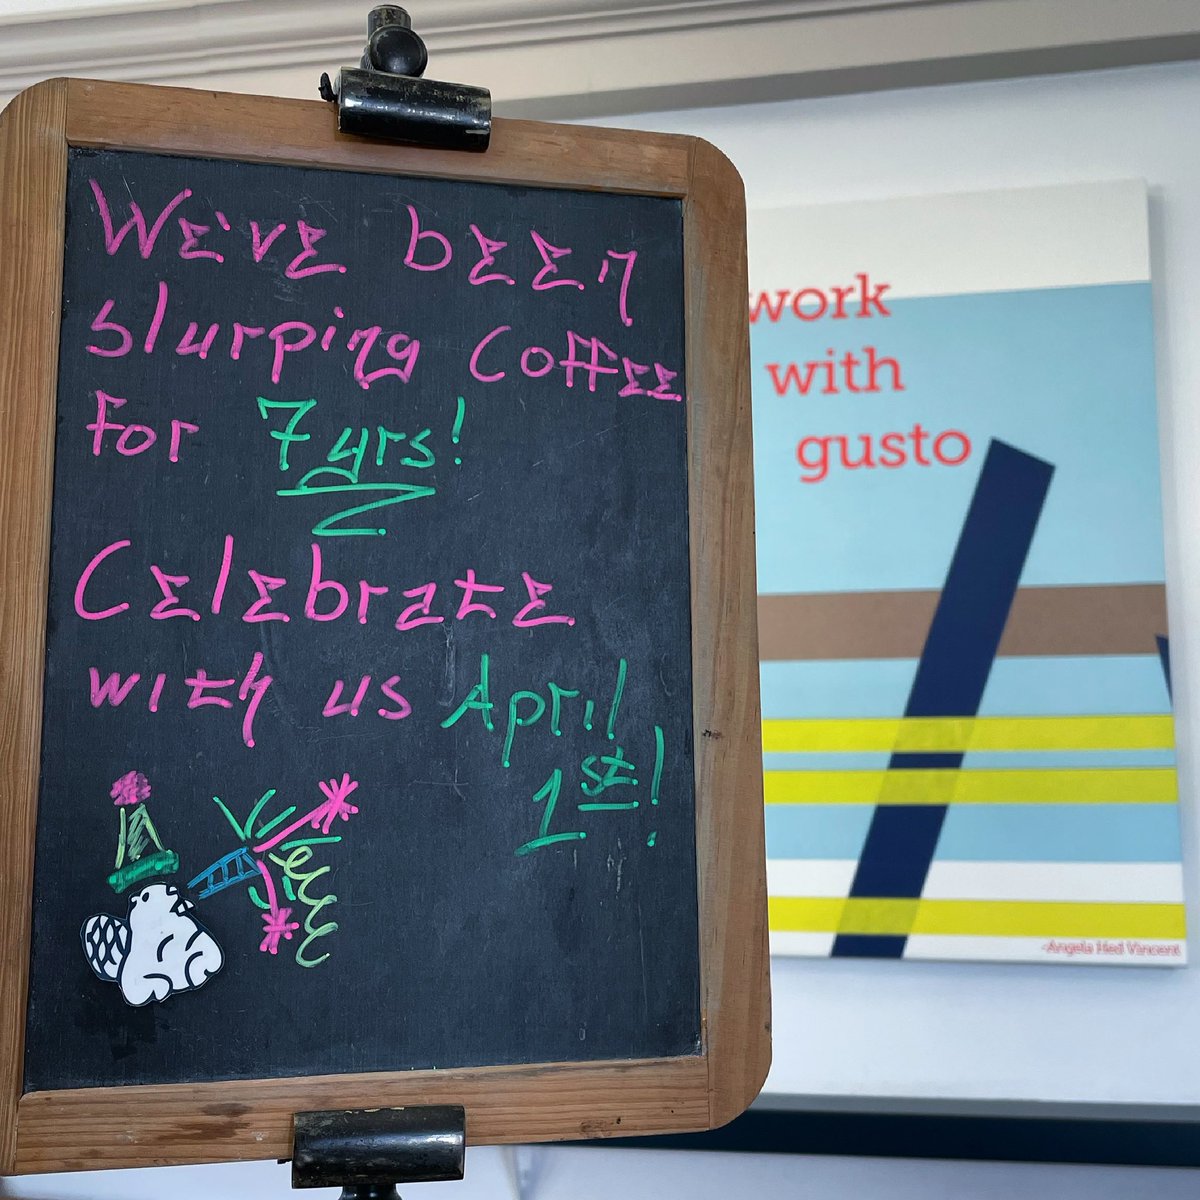 We've been
slurping Coffee
for 7yrs!
Celebrate
with us April
1st!
work
with
gusto
-Angela Hed Vincent